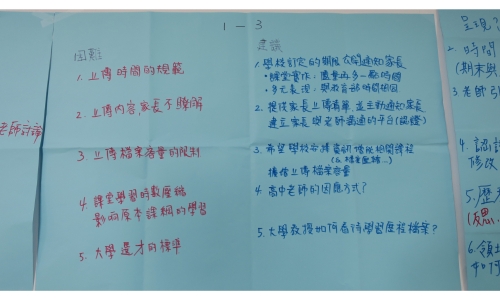 1－3
困難
1. 上傳時間的規範
2. 上傳內容,家長不瞭解
3. 上傳檔案容量的限制
4. 課堂學習的數壓縮
影响原本課綱的學習
5. 大學選才的標準
建議
1. 學校訂定的期限公開通知家長
• 課堂實作:盡量再多一點時間
• 多元表現:與教育部時間相同
2. 提供家長上傳清單,並主動通知家長
建立家長與老師溝通的平台
3. 希望學校安排資訊
擴增上傳檔案容量
4. 高中老師的因應方式?
5. 大學教授如何看待學習歷程檔案?
老師討論
呈現?
2. 時間
(期末與
3. 老師
4. 認證
修改
5. 歷
(反思.
6. 領
如何